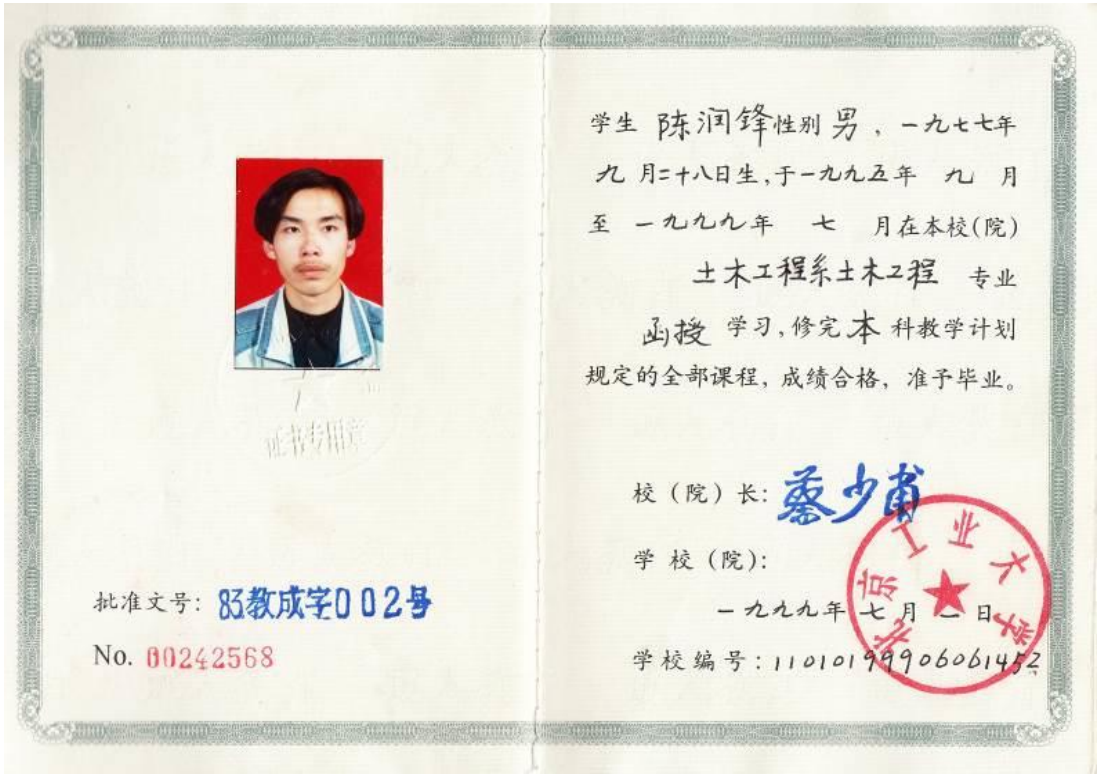 证书专用章
批准文号：83教成字002号
No. 00242568
学生 陈润锋性别 男，一九七七年
九 月二十八日生，于一九九五年 九 月
至 一九九九年 七 月在本校(院)
土木工程系土木工程 专业
函授 学习，修完 本 科教学计划
规定的全部课程，成绩合格，准予毕业。
校（院）长：蔡少甫
学 校（院）：
北京工业大学
一九九九年 七 月 二 日
学校编号：11010199906061452